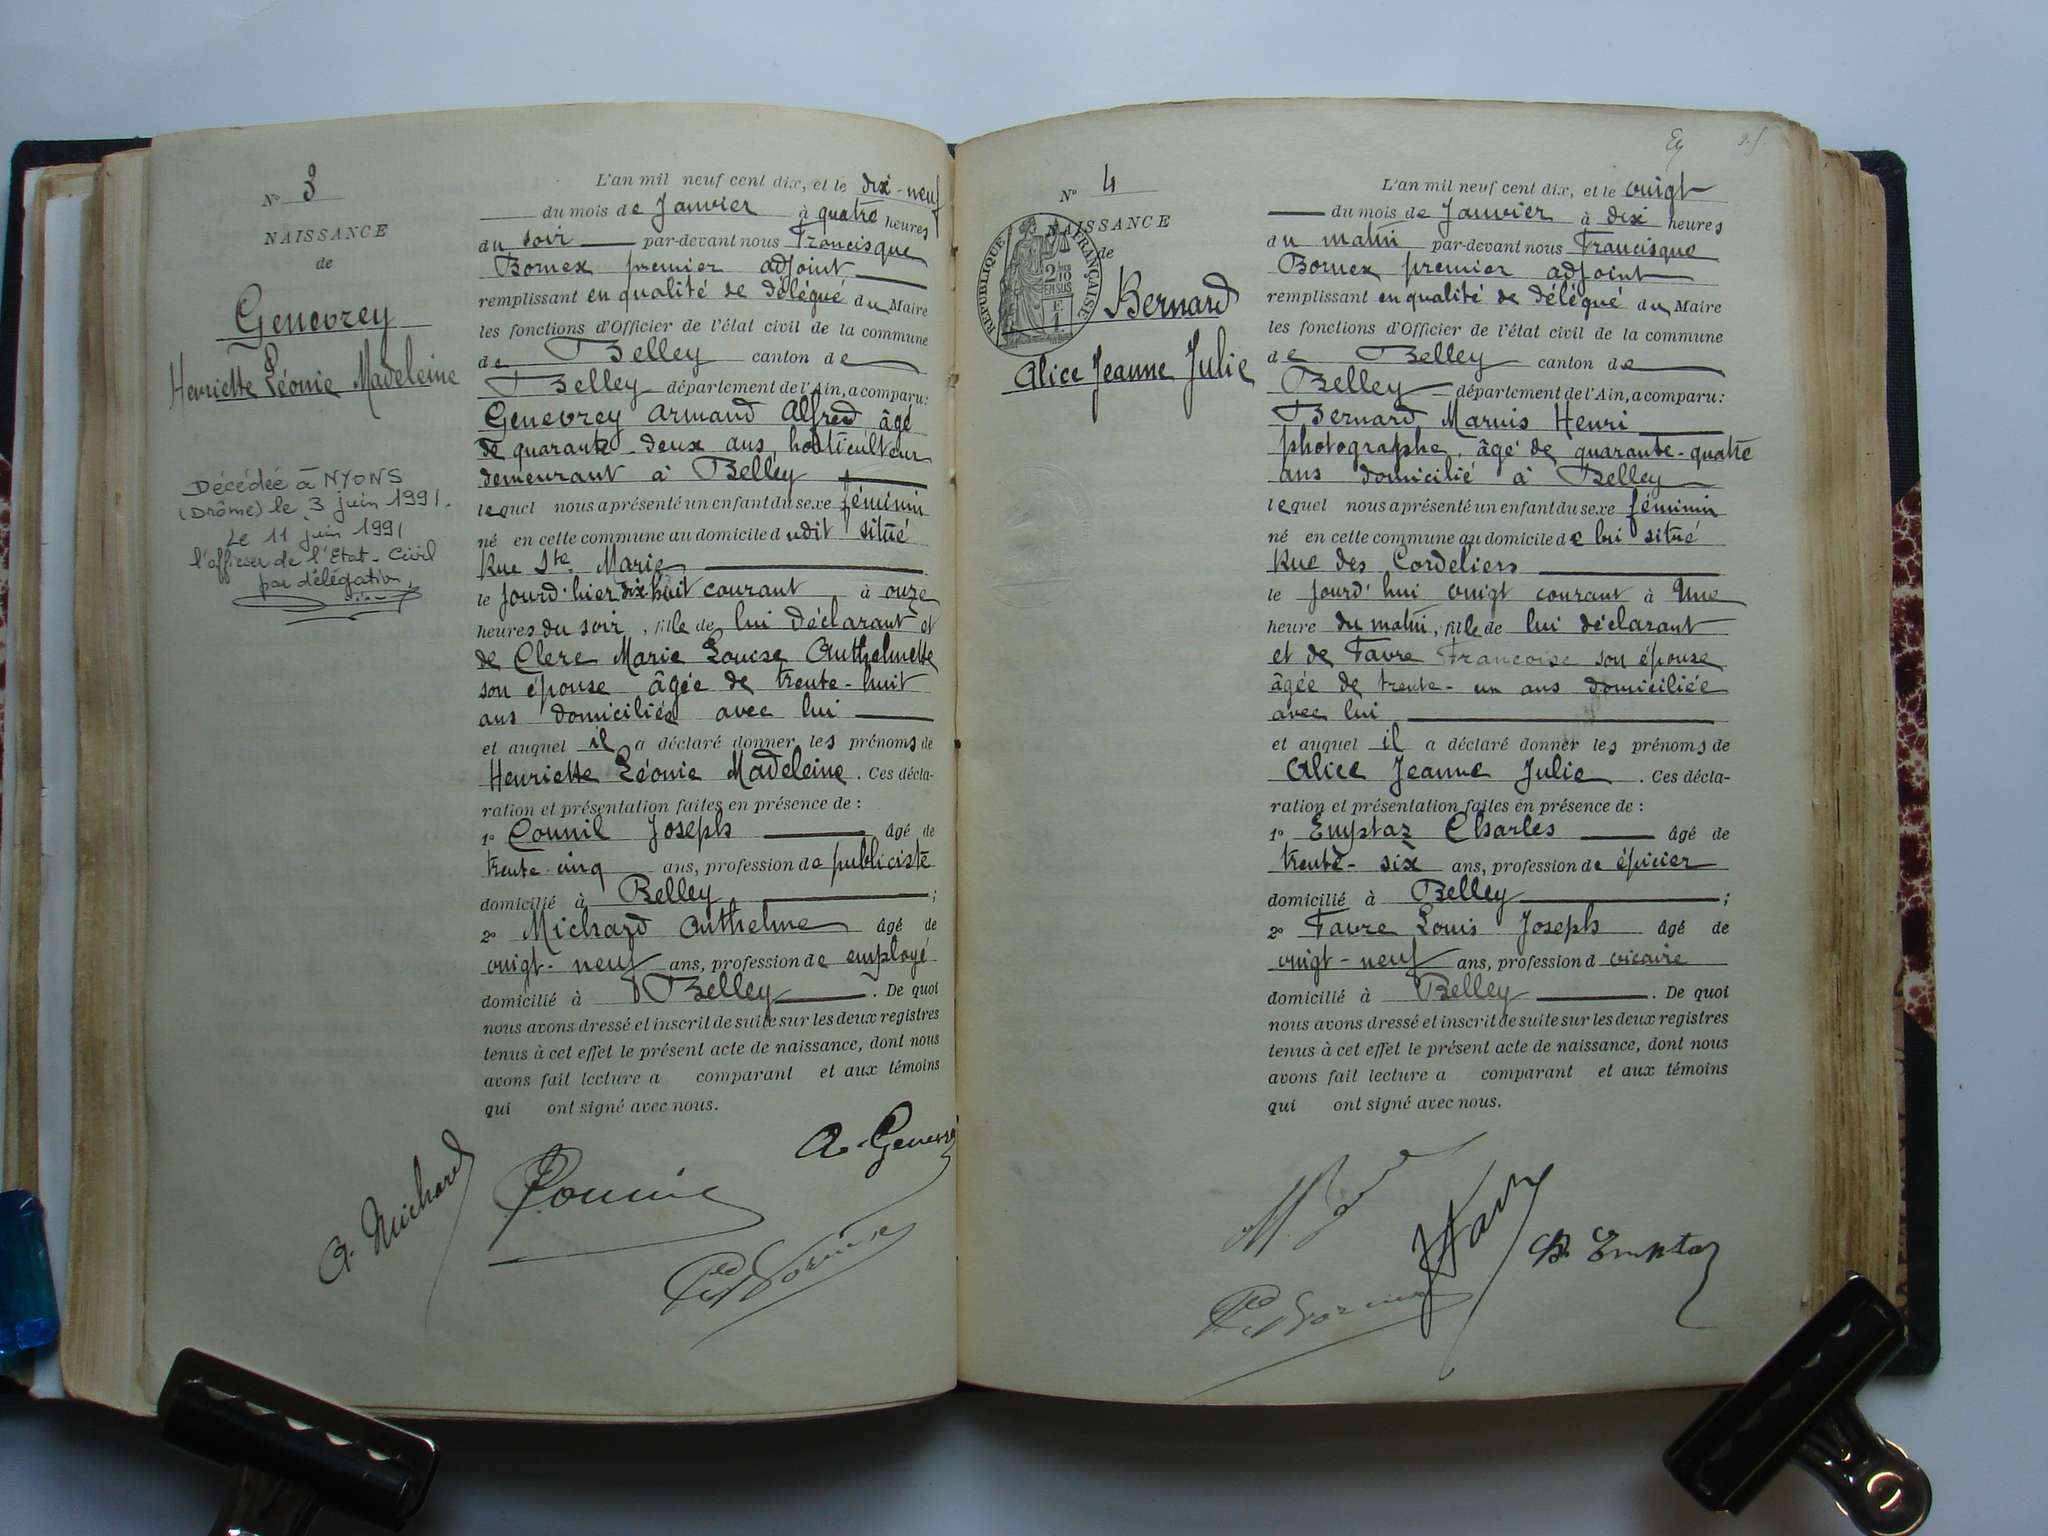 N° 3
NAISSANCE
de
Genevrey
Henriette Léonie Madeleine
Décédée à NYONS
(Drôme) le 3 juin 1991.
Le 11 juin 1991
l'officier de l'Etat-Civil
par délégation,
L'an mil neuf cent dix, et le dix-neuf
du mois de Janvier à quatre heures
du soir par-devant nous Francisque
Bornex premier adjoint
remplissant en qualité de délégué du Maire
les fonctions d'Officier de l'état civil de la commune
de Belley canton de
Belley département de l'Ain, a comparu:
Genevrey Armand Alfred âgé
de quarante-deux ans, horticulteur
demeurant à Belley
lequel nous a présenté un enfant du sexe féminin
né en cette commune au domicile dudit situé
Rue Ste Marie
le jourd'hier dix huit courant à onze
heures du soir, fille de lui déclarant et
de Clerc Marie Louise Anthelmette
son épouse âgée de trente-huit
ans domiciliés avec lui
et auquel il a déclaré donner les prénoms de
Henriette Léonie Madeleine. Ces décla-
ration et présentation faites en présence de :
1° Counil Joseph âgé de
trente-cinq ans, profession de publiciste
domicilié à Belley ;
2° Michard Anthelme âgé de
vingt-neuf ans, profession de employé
domicilié à Belley. De quoi
nous avons dressé et inscrit de suite sur les deux registres
tenus à cet effet le présent acte de naissance, dont nous
avons fait lecture a comparant et aux témoins
qui ont signé avec nous.
A. Michard
A. Genevrey
N° 4
NAISSANCE
de
RÉPUBLIQUE FRANÇAISE
2/10 EN SUS
Bernard
Alice Jeanne Julie
L'an mil neuf cent dix, et le vingt
du mois de Janvier à dix heures
du matin par-devant nous Francisque
Bornex premier adjoint
remplissant en qualité de délégué du Maire
les fonctions d'Officier de l'état civil de la commune
de Belley canton de
Belley département de l'Ain, a comparu:
Bernard Marius Henri
photographe, âgé de quarante-quatre
ans domicilié à Belley
lequel nous a présenté un enfant du sexe féminin
né en cette commune au domicile de lui situé
Rue des Cordeliers
le jourd'hui vingt courant à une
heure du matin, fille de lui déclarant
et de Favre Françoise son épouse
âgée de trente-un ans domiciliée
avec lui
et auquel il a déclaré donner les prénoms de
Alice Jeanne Julie. Ces décla-
ration et présentation faites en présence de :
1° Emptaz Charles âgé de
trente-six ans, profession de épicier
domicilié à Belley ;
2° Favre Louis Joseph âgé de
vingt-neuf ans, profession d vicaire
domicilié à Belley. De quoi
nous avons dressé et inscrit de suite sur les deux registres
tenus à cet effet le présent acte de naissance, dont nous
avons fait lecture a comparant et aux témoins
qui ont signé avec nous.
Ch. Emptaz